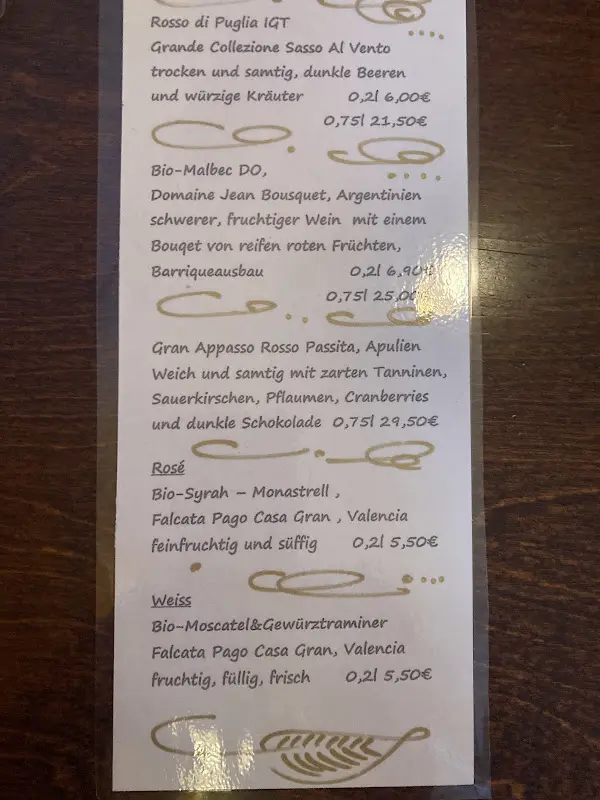 Rosso di Puglia IGT
Grande Collezione Sasso Al Vento
trocken und samtig, dunkle Beeren
und würzige Kräuter 0,2l 6,00€
0,75l 21,50€
Bio-Malbec DO,
Domaine Jean Bousquet, Argentinien
schwerer, fruchtiger Wein mit einem
Bouqet von reifen roten Früchten,
Barriqueausbau 0,2l 6,90€
0,75l 25,00
Gran Appasso Rosso Passita, Apulien
Weich und samtig mit zarten Tanninen,
Sauerkirschen, Pflaumen, Cranberries
und dunkle Schokolade 0,75l 29,50€
Rosé
Bio-Syrah – Monastrell ,
Falcata Pago Casa Gran , Valencia
feinfruchtig und süffig 0,2l 5,50€
Weiss
Bio-Moscatel&Gewürztraminer
Falcata Pago Casa Gran, Valencia
fruchtig, füllig, frisch 0,2l 5,50€